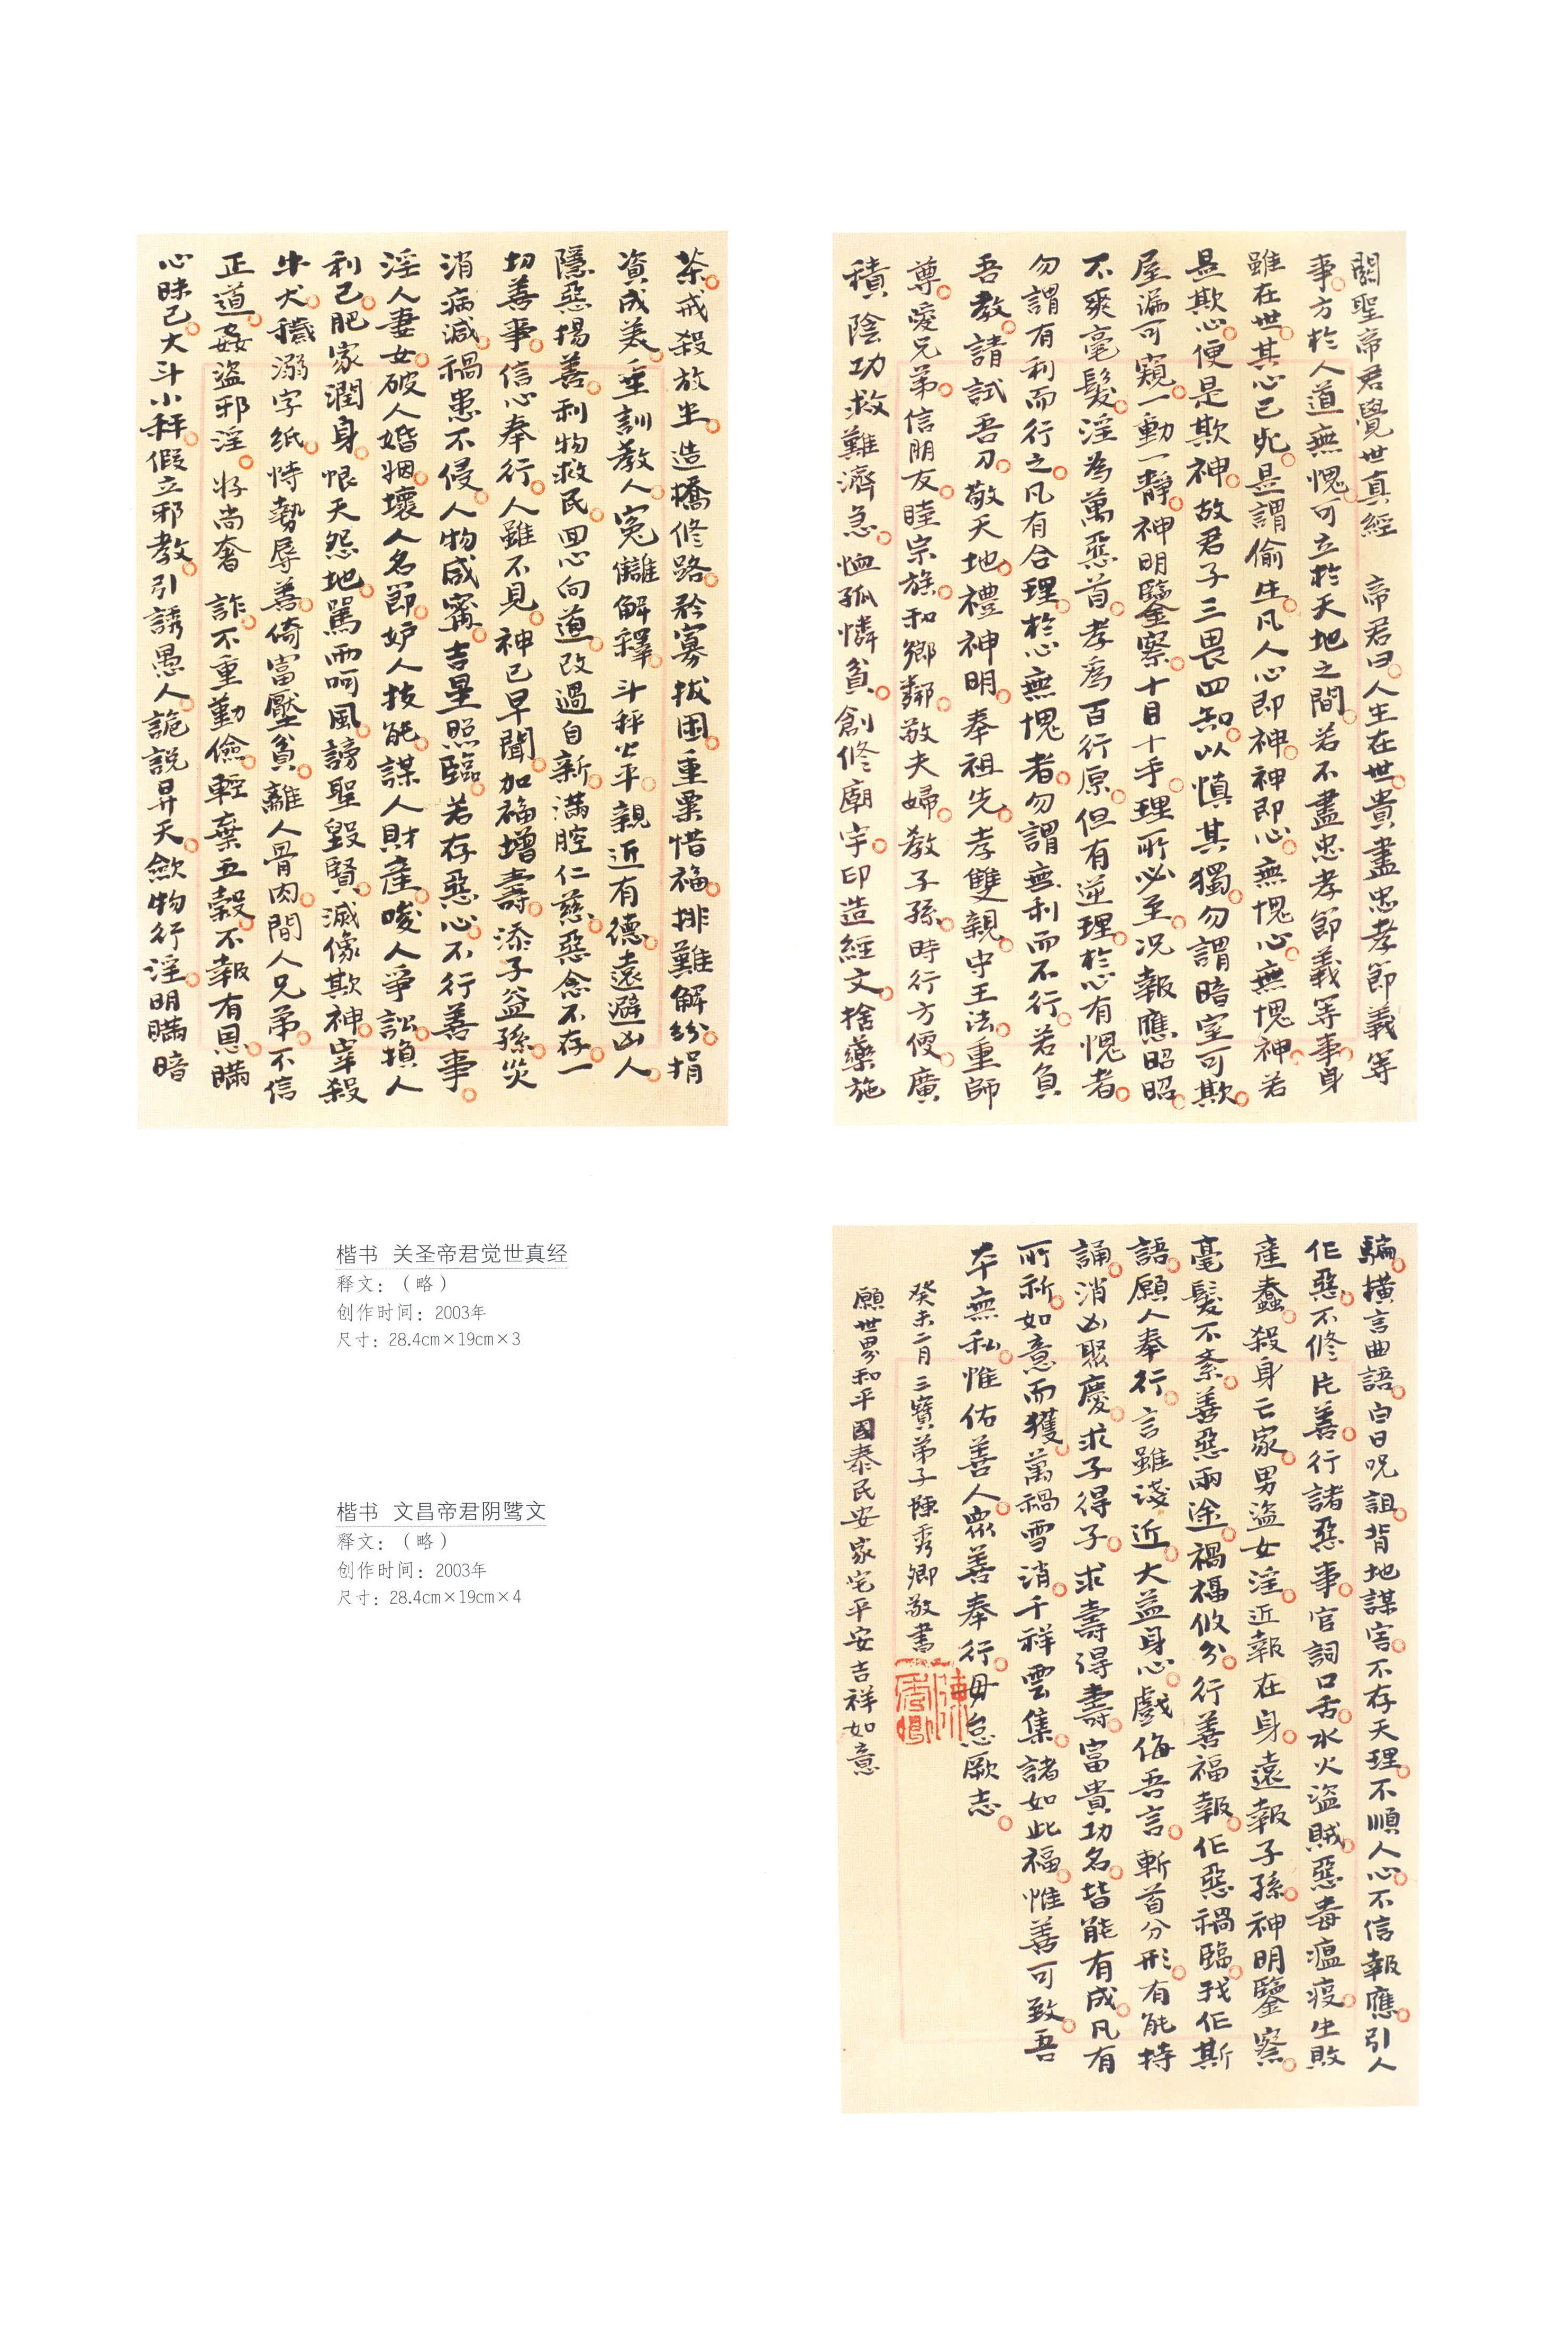 關聖帝君覺世真經 帝君曰人生在世貴盡忠孝節義等
事方於人道無愧可立於天地之間若不盡忠孝節義等事身
雖在世其心已死是謂偷生凡人心即神神即心無愧心無愧神若
是欺心便是欺神故君子三畏四知以慎其獨勿謂暗室可欺
屋漏可窺一動一靜神明鑒察十目十手理所必至況報應昭昭
不爽毫髮淫為萬惡首孝為百行原但有逆理於心有愧者
勿謂有利而行之凡有合理於心無愧者勿謂無利而不行若負
吾教請試吾刀敬天地禮神明奉祖先孝雙親守王法重師
尊愛兄弟信朋友睦宗族和鄉鄰敬夫婦教子孫時行方便廣
積陰功救難濟急恤孤憐貧創修廟宇印造經文捨藥施
茶戒殺放生造橋修路矜寡拔困重粟惜福排難解紛捐
資成美垂訓教人冤讎解釋斗秤公平親近有德遠避凶人
隱惡揚善利物救民回心向道改過自新滿腔仁慈惡念不存一
切善事信心奉行人雖不見神已早聞加福增壽添子益孫災
消病減禍患不侵人物咸寧吉星照臨若存惡心不行善事
淫人妻女破人婚姻壞人名節妒人技能謀人財產唆人爭訟損人
利己肥家潤身恨天怨地罵雨呵風謗聖毀賢滅像欺神宰殺
牛犬穢溺字紙恃勢辱善倚富壓貧離人骨肉間人兄弟不信
正道姦盜邪淫好尚奢詐不重勤儉輕棄五穀不報有恩瞞
心昧己大斗小秤假立邪教引誘愚人詭説昇天歛物行淫明瞞暗
騙橫言曲語白日呪詛背地謀害不存天理不順人心不信報應引人
作惡不修片善行諸惡事官詞口舌水火盜賊惡毒瘟疫生敗
產蠢殺身亡家男盜女淫近報在身遠報子孫神明鑒察
毫髮不紊善惡兩途禍福攸分行善福報作惡禍臨我作斯
語願人奉行言雖淺近大益身心戲侮吾言斬首分形有能持
誦消凶聚慶求子得子求壽得壽富貴功名皆能有成凡有
所祈如意而獲萬禍雪消千祥雲集諸如此福惟善可致吾
本無私惟佑善人眾善奉行毋怠厥志
癸未二月三寶弟子陳秀卿敬書
願世界和平國泰民安家宅平安吉祥如意
楷书 关圣帝君觉世真经
释文：（略）
创作时间：2003年
尺寸：28.4cm×19cm×3
楷书 文昌帝君阴骘文
释文：（略）
创作时间：2003年
尺寸：28.4cm×19cm×4